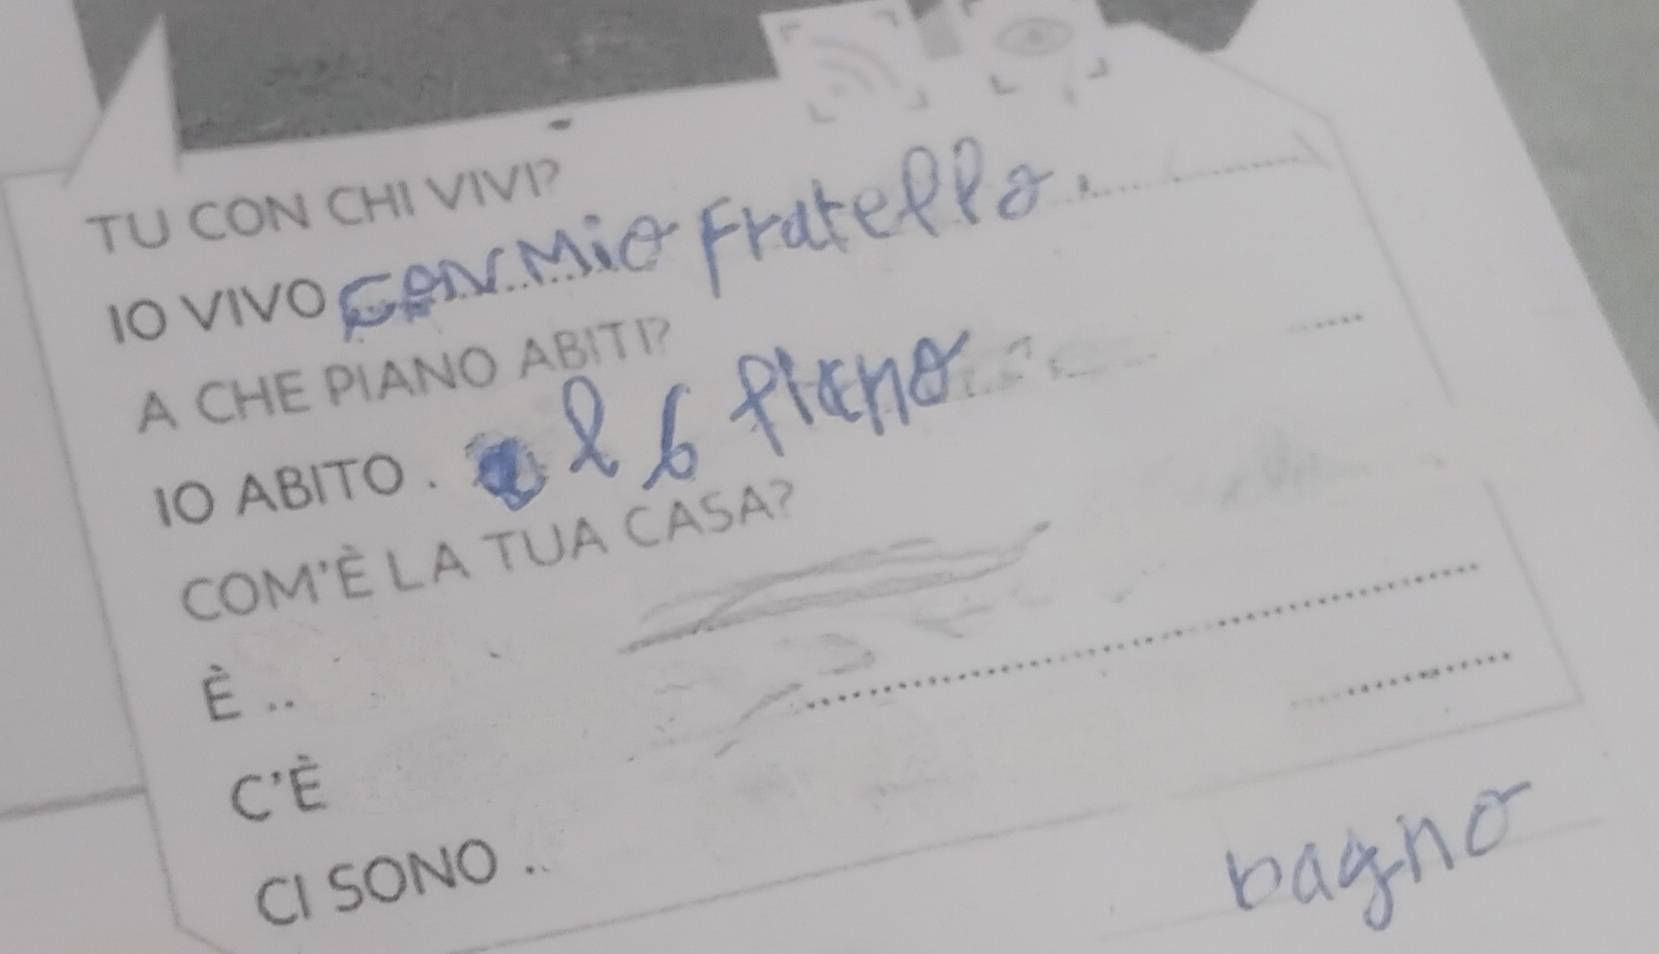 TU CON CHI VIVI?
IO VIVO CON Mio Fratello.
A CHE PIANO ABITI?
IO ABITO . al 6 Piano
COM'È LA TUA CASA?
È ..
C'È
CI SONO ..
bagno